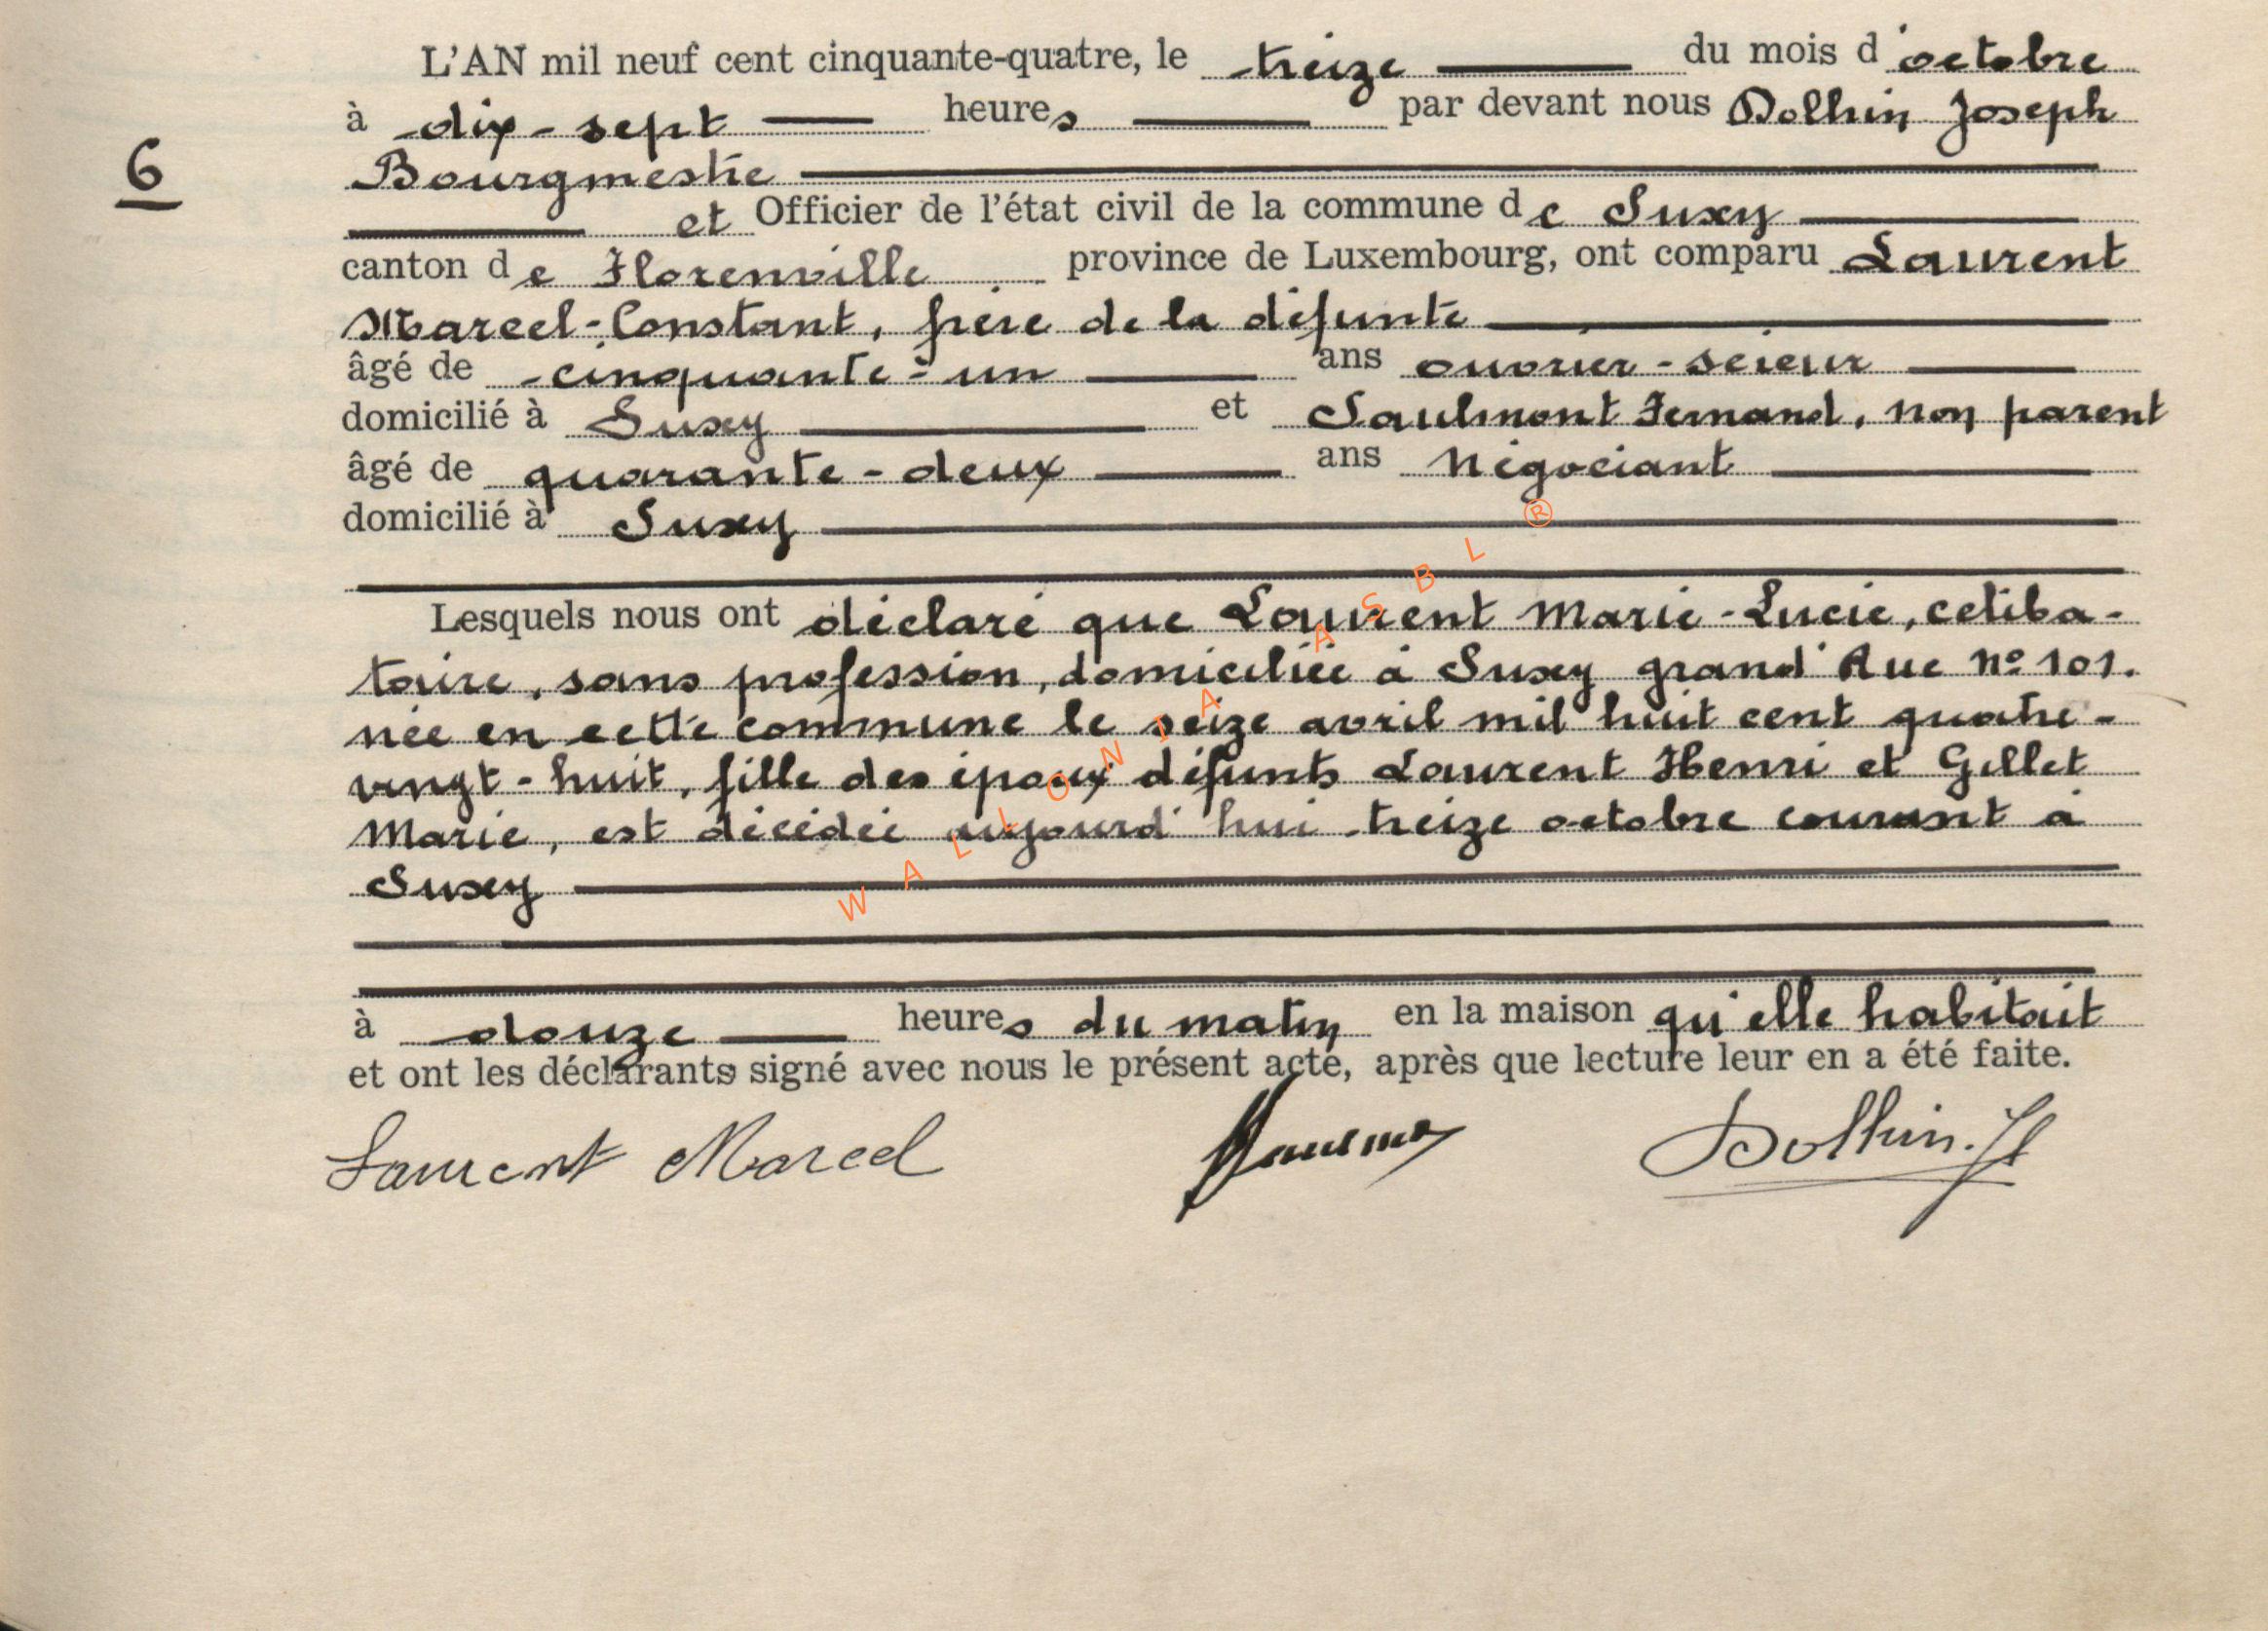 L'AN mil neuf cent cinquante-quatre, le treize du mois d'octobre
à dix-sept heures par devant nous Dolhin Joseph
6
Bourgmestre
et Officier de l'état civil de la commune de Suxy
canton de Florenville province de Luxembourg, ont comparu Laurent
Marcel-Constant, frère de la défunte
âgé de cinquante-un ans ouvrier-scieur
domicilié à Suxy et Saulmont Fernand, non parent
âgé de quarante-deux ans négociant
domicilié à Suxy
Lesquels nous ont déclaré que Laurent Marie-Lucie, céliba-
taire, sans profession, domiciliée à Suxy grand'Rue n° 101.
née en cette commune le seize avril mil huit cent quatre-
vingt-huit, fille des époux défunts Laurent Henri et Gillet
Marie, est décédée aujourd'hui treize octobre courant à
Suxy
à douze heures du matin en la maison qu'elle habitait
et ont les déclarants signé avec nous le présent acte, après que lecture leur en a été faite.
Laurent Marcel Dolhin. J
WALLONIA ASBL ®